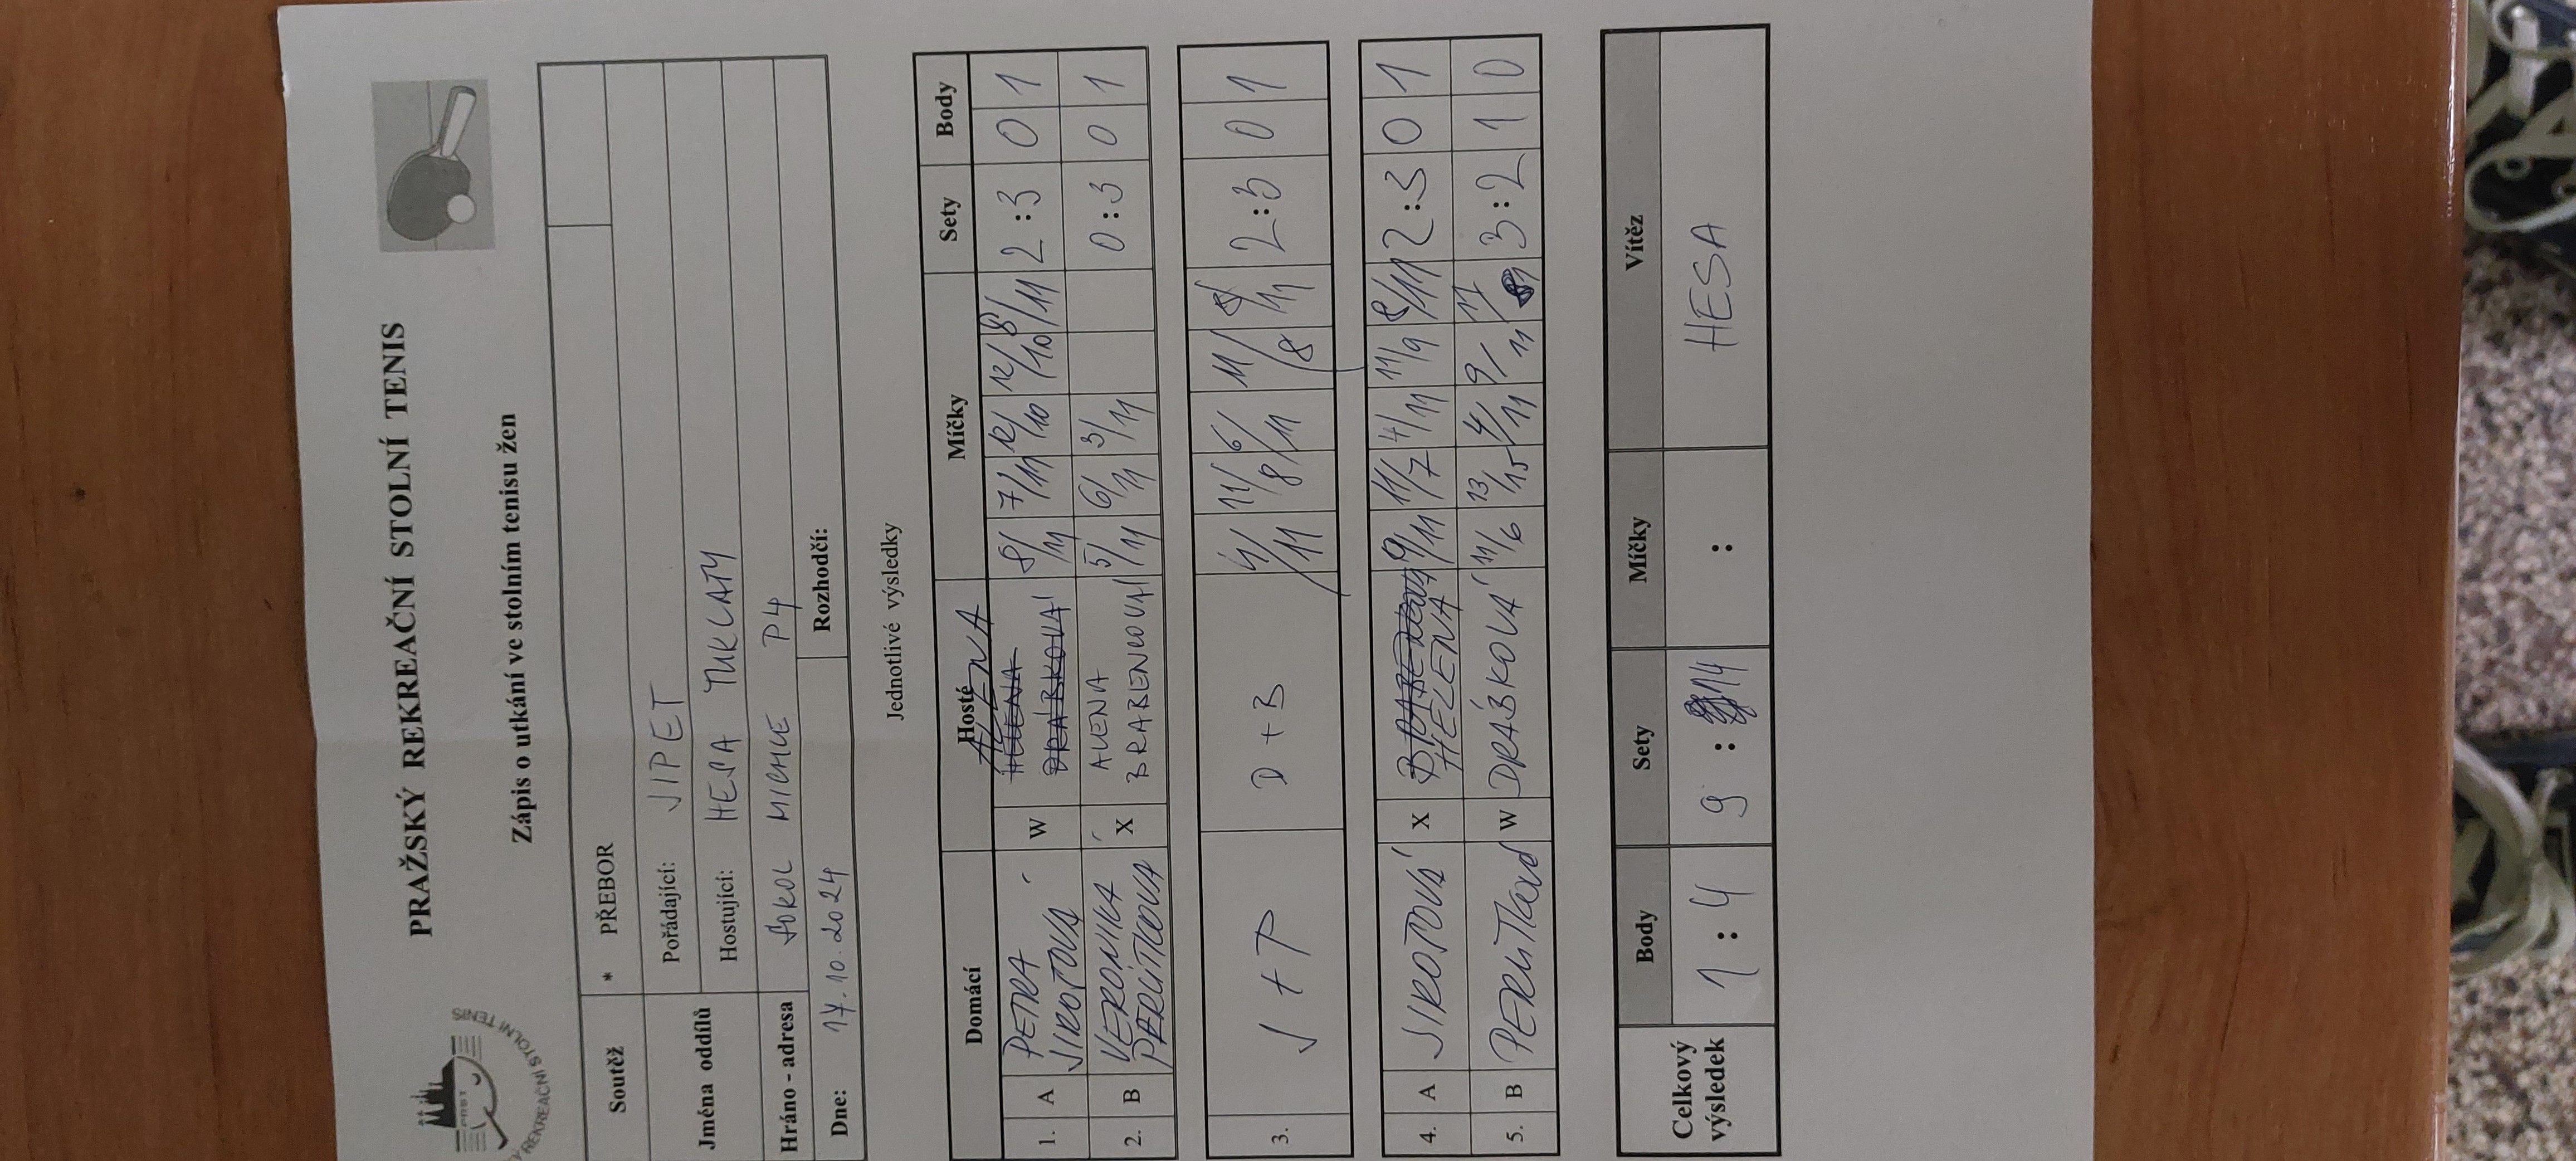 PRAŽSKÝ REKREAČNÍ STOLNÍ TENIS
PRST
REKREAČNÍ STOLNÍ TENIS
Zápis o utkání ve stolním tenisu žen
Soutěž * PŘEBOR
Jména oddílů Pořádající: JIPET
Hostující: HESA TUKLATY
Hráno - adresa SOKOL MICHLE P4
Dne: 17.10.2024 Rozhodčí:
Jednotlivé výsledky
Domácí Hosté Míčky Sety Body
ALENA
1. A PETRA JIROTOVÁ W HELENA DRÁBKOVÁ 8/11 7/11 12/10 12/10 8/11 2:3 0 1
2. B VERONIKA PERÚTKOVÁ X ALENA BRABENCOVÁ 5/11 6/11 3/11 0:3 0 1
3. J + P D + B 4/11 11/8 6/11 11/8 /11 2:3 0 1
4. A JIROTOVÁ X HELENA 9/11 11/7 4/11 11/9 8/11 2:3 0 1
5. B W DRÁBKOVÁ 11/6 13/15 4/11 9/11 3:2 1 0
Celkový výsledek Body Sety Míčky Vítěz
1 : 4 9 : 14 : HESA